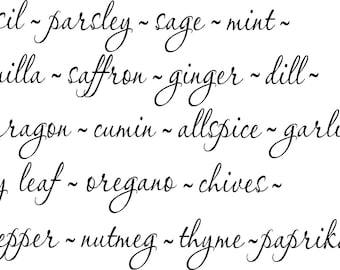 sil ~ parsley ~ sage ~ mint ~
nilla ~ saffron ~ ginger ~ dill ~
rragon ~ cumin ~ allspice ~ garli
y leaf ~ oregano ~ chives ~
epper ~ nutmeg ~ thyme ~ paprika